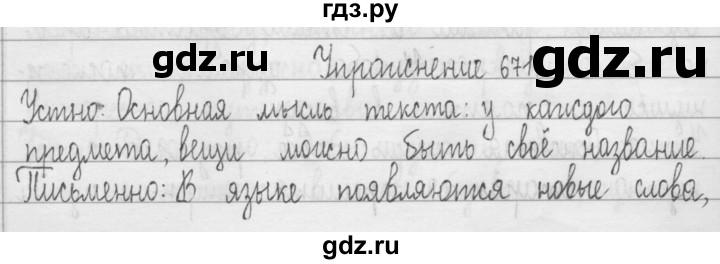 гдз.ру
gdz.ru gdz.ru
Упражнение 671
Устно: Основная мысль текста: у каждого
предмета, вещи можно быть своё название.
Письменно: В языке появляются новые слова,
gdz.ru